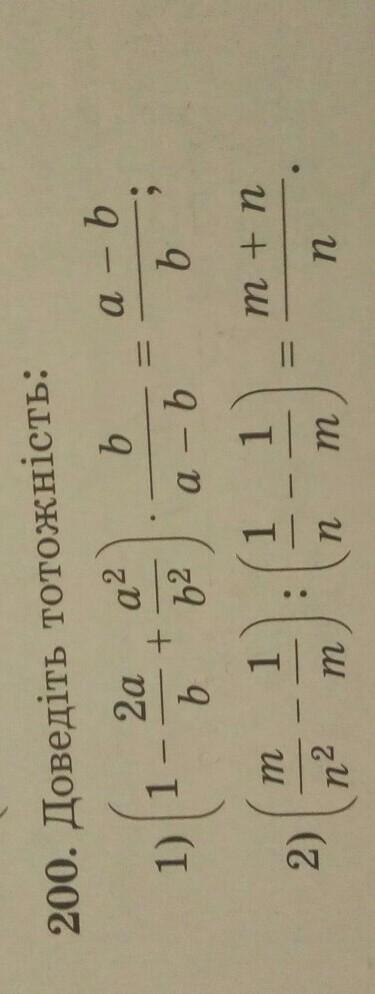 200. Доведіть тотожність:
1) (1 − 2a/b + a²/b²) · b/(a − b) = (a − b)/b;
2) (m/n² − 1/m) : (1/n − 1/m) = (m + n)/n.